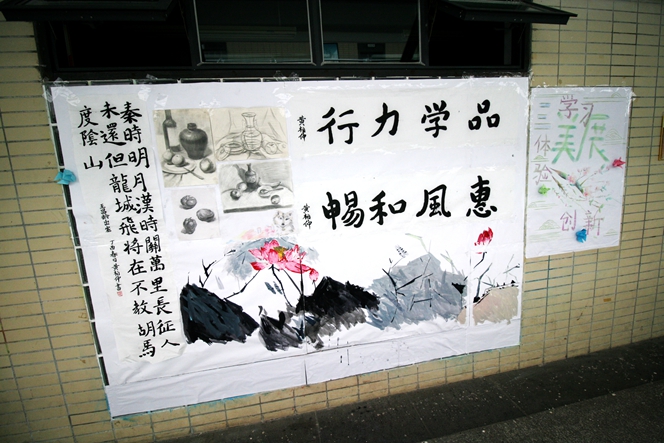 品学力行
惠風和暢
秦時明月漢時關萬里長征人
未還但龍城飛將在不教胡馬
度陰山
学习
美展
体验
创新